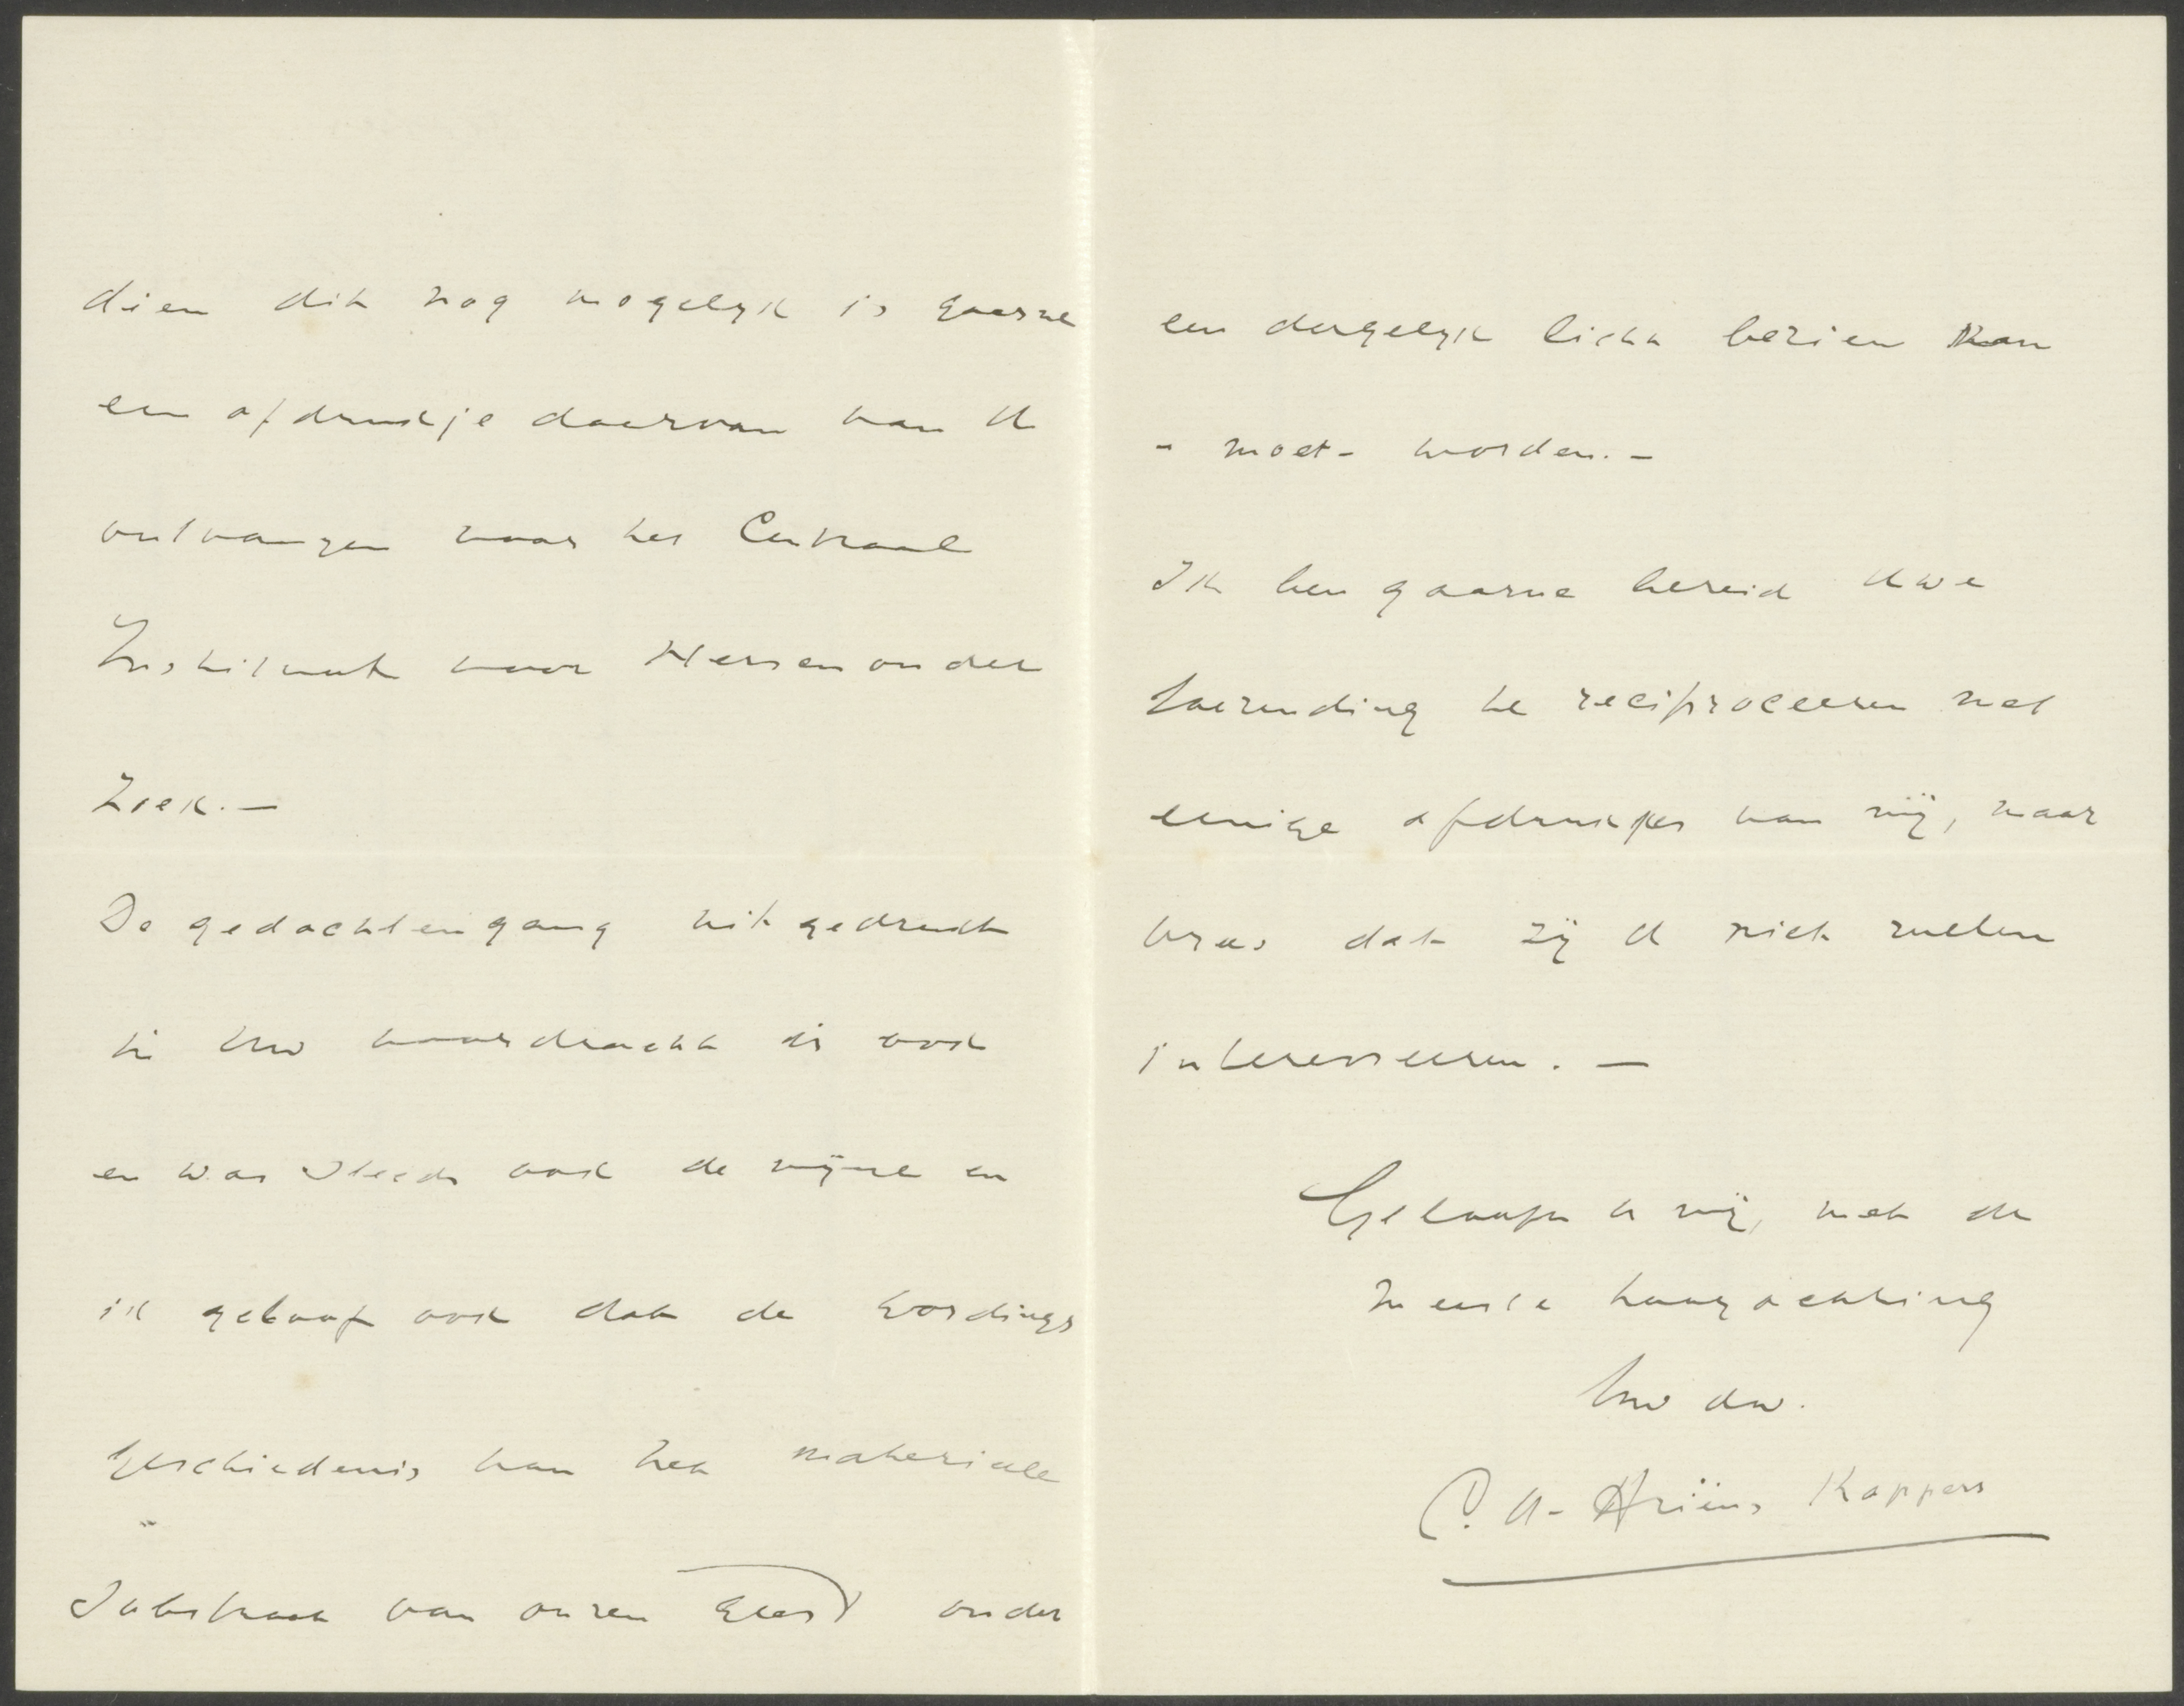 dien dit nog mogelyk is gaarne
een afdrukje daarvan van U
ontvangen voor het Centraal
Instituut voor Hersenonder
zoek.—
De gedachtengang uitgedrukt
in Uw voordracht is ook
en was steeds ook de mijne en
ik geloof ook dat de wordings
geschiedenis van het materieele
Substraat van onzen geest onder
een dergelyk licht bezien kan
- moet - worden. —
Ik ben gaarne bereid Uwe
toezending te reciproceeren met
eenige afdrukjes van mij, maar
vrees dat zij U niet zullen
interesseeren. —
Geloof U mij, met de
meeste hoogachting
Uw dw.
C. U. Ariëns Kappers